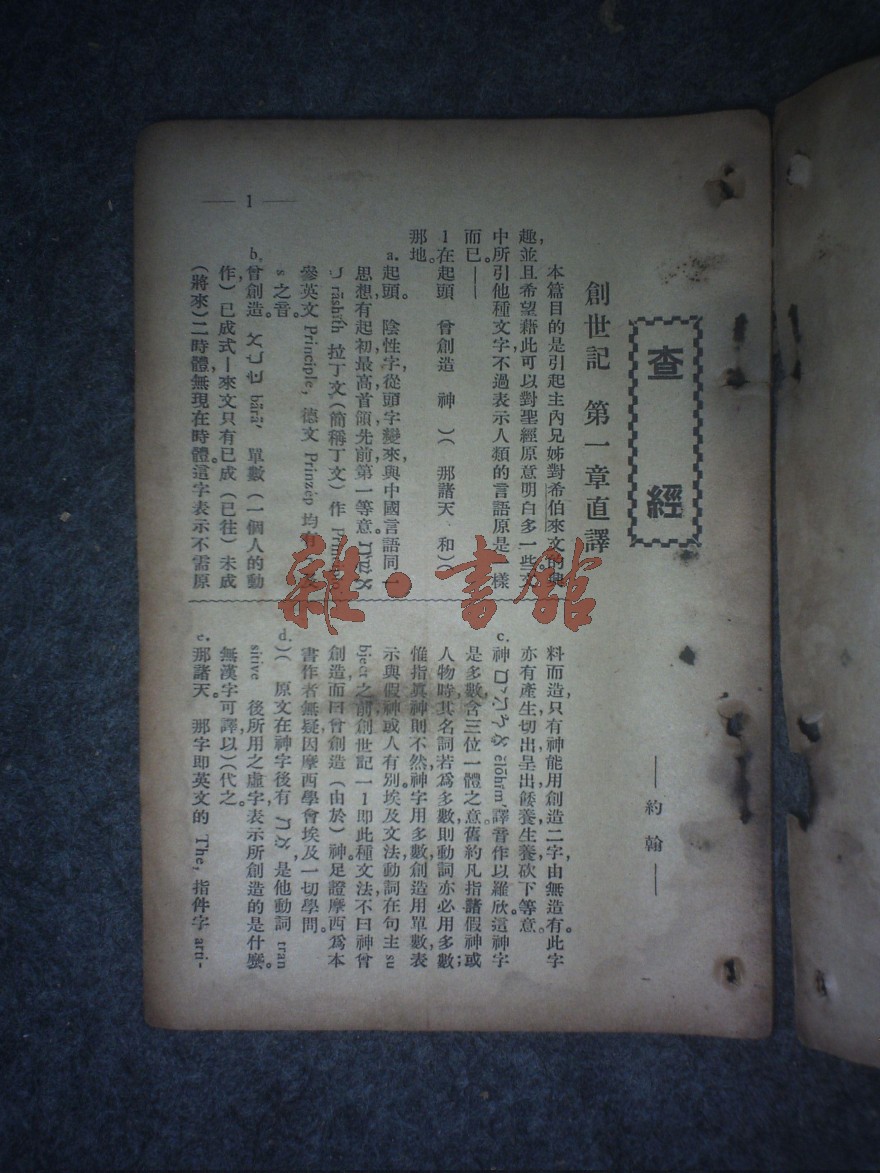 查經
創世記 第一章直譯
——約翰——
本篇目的是引起主內兄姊對希伯來文的興
趣，並且希望藉此可以對聖經原意明白多一些。文
中所引他種文字，不過表示人類的言語原是一樣
而已。——
1在起頭 曾創造 神 )( 那諸天 和)(
那地。
a. 起頭。 陰性字，從頭字變來，與中國言語同一
思想，有起初，最高，首領，先前，第一等意。
rāshīth 拉丁文(簡稱丁文)作
參英文 Principle, 德文 Prinzép 均有
s 之音。
b. 曾創造。 ברא bārā' 單數 (一個人的動
作) 已成式—來文只有已成 (已往) 未成
(將來)二時體，無現在時體。這字表示不需原
料而造，只有神能用創造二字，由無造有。此字
亦有產生，切出，呈出，餧養，生養，砍下等意。
c. 神 אלהים ĕlōhīm' 譯音作以羅欣。這神字
是多數，含三位一體之意。舊約凡指諸假神或
人物時，其名詞若爲多數，則動詞亦必用多數；
惟指眞神則不然，神字用多數，創造用單數，表
示與假神或人有別。埃及文法，動詞在句主 su
bject 之前，創世記一 1 即此種文法，不曰神曾
創造，而曰曾創造 (由於) 神。足證摩西爲本
書作者無疑，因摩西學會埃及一切學問。
d. )( 原文在神字後有 את, 是他動詞 tran
sitive 後所用之虛字，表示所創造的是什麽。
無漢字可譯，以)(代之。
e. 那諸天。 那字即英文的 The, 指件字 arti-
— 1 —
雜·書館